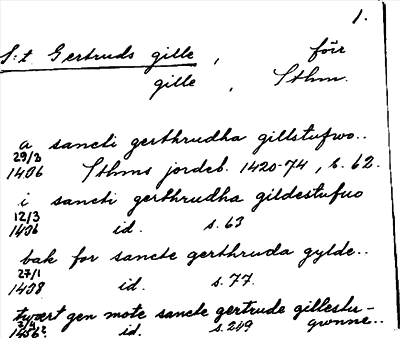 1.
S:t Gertruds gille, förr
gille, Sthm.
a sancti gerthrudha gillstufwo..
29/3
1436 Sthms jordeb. 1420-74, s. 62.
i sancti gerthrudha gildestufuo
12/3
1436 id. s. 63
bak for sancte gerthruda gylde..
27/1
1438 id. s. 77.
twært gen mote sancte gertrude gillestu-
gwnne..
1456 id. s. 249